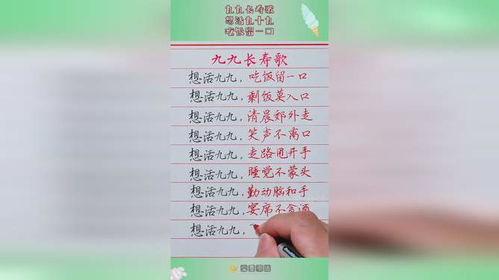 九九长寿歌
想活九十九
吃饭留一口
九九长寿歌
想活九九，吃饭留一口
想活九九，剩饭莫入口
想活九九，清晨郊外走
想活九九，笑声不离口
想活九九，走路甩开手
想活九九，睡觉不蒙头
想活九九，勤动脑和手
想活九九，宴席不贪酒
想活九九，